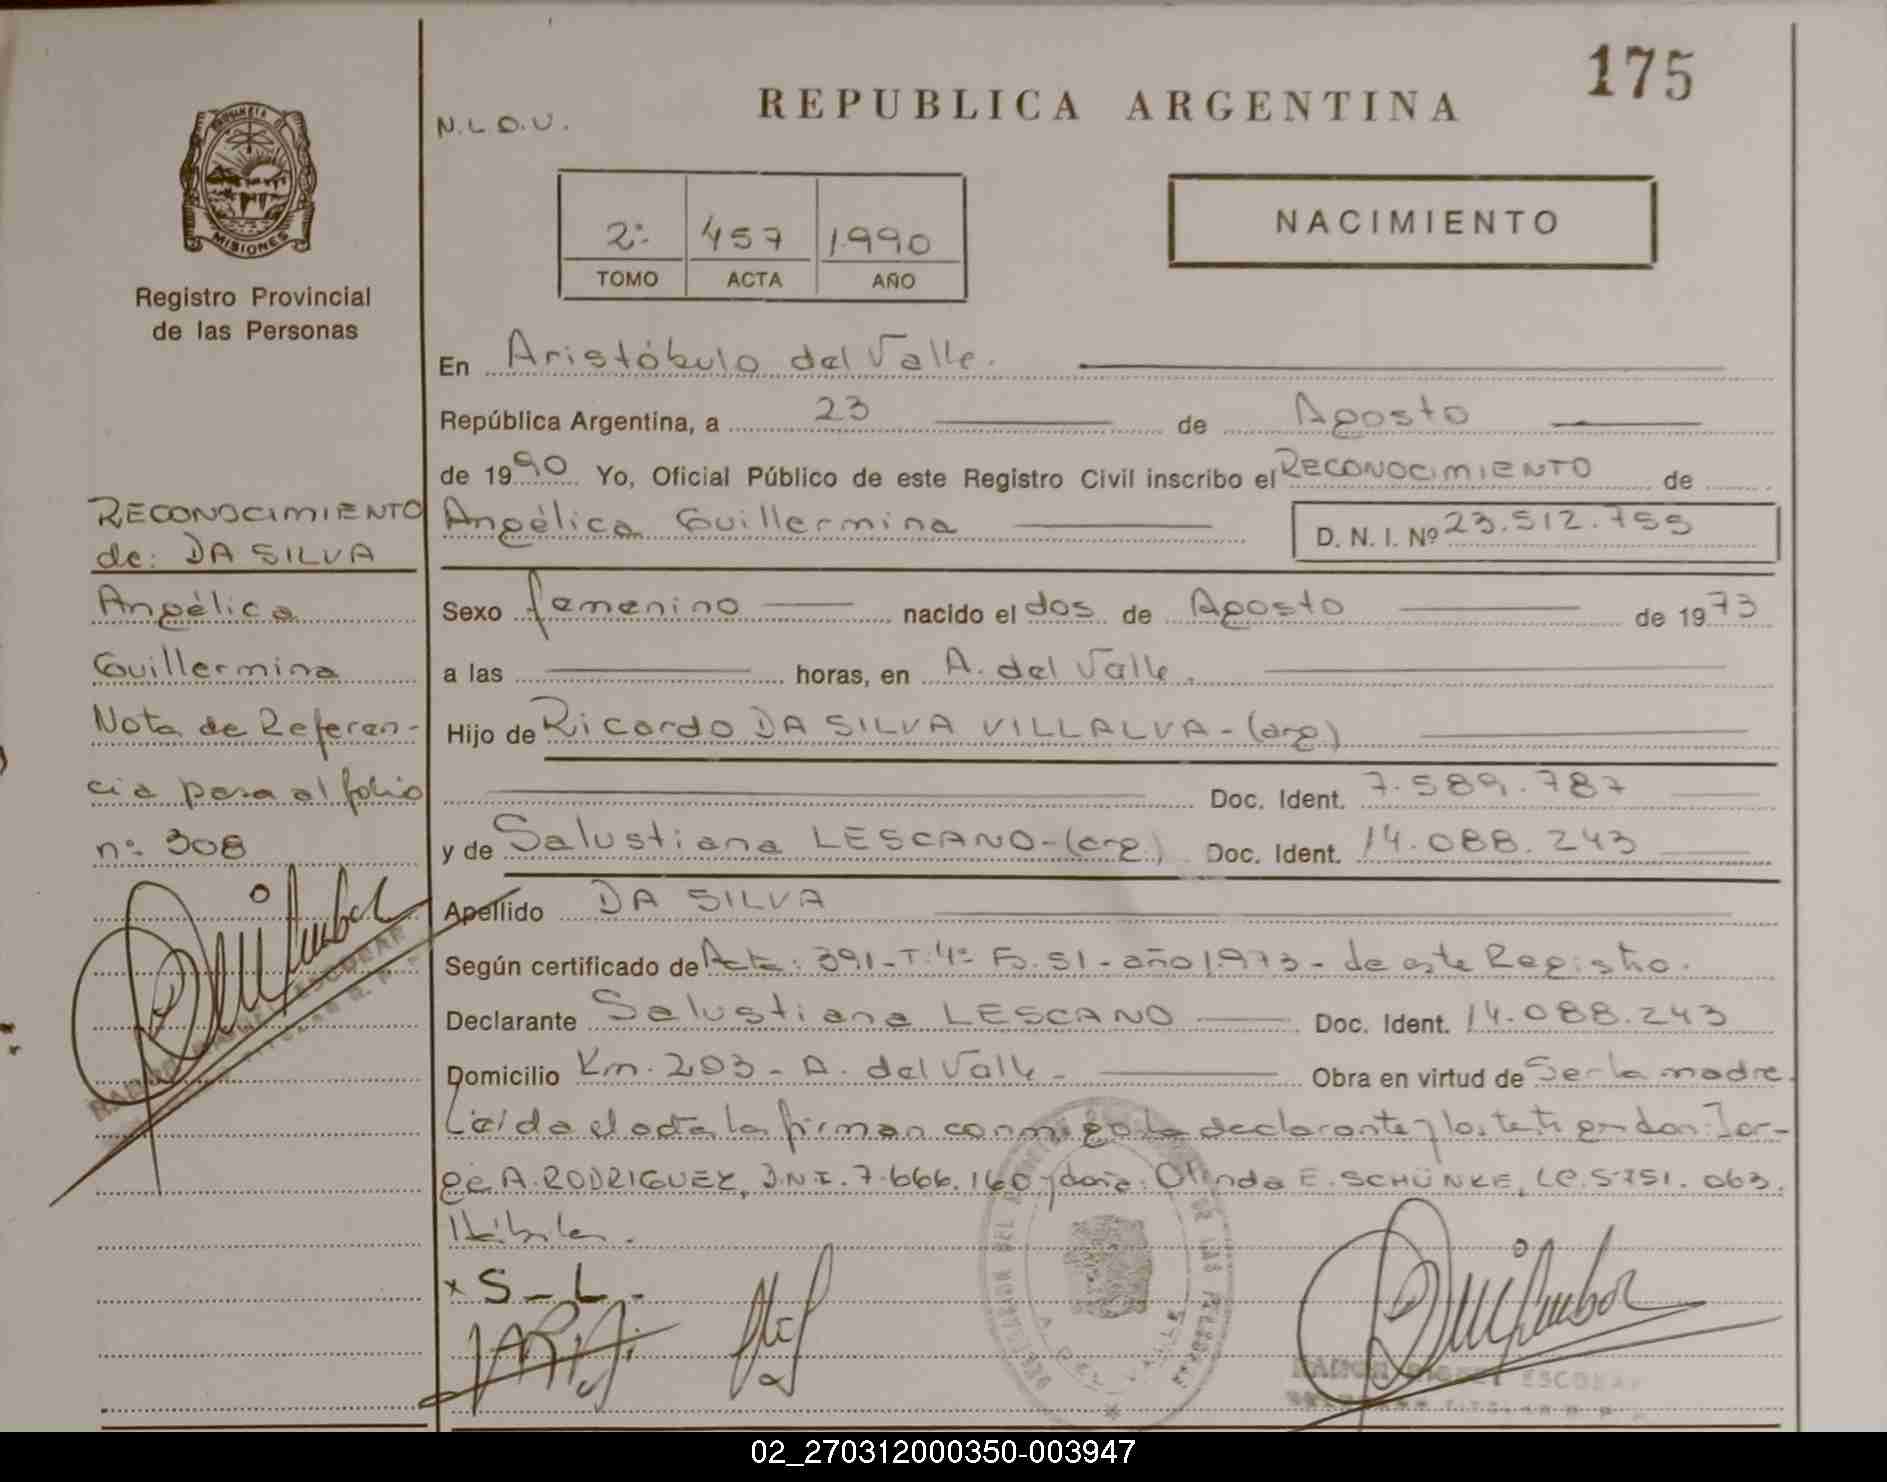 175
REPUBLICA ARGENTINA
N.L.O.U.
NACIMIENTO
2º 457 1990
TOMO ACTA AÑO
MISIONES
Registro Provincial
de las Personas
En Aristóbulo del Valle.
República Argentina, a 23 de Agosto
de 1990 Yo, Oficial Público de este Registro Civil inscribo el RECONOCIMIENTO de
Angélica Guillermina D. N. I. Nº 23.512.755
Sexo femenino nacido el dos de Agosto de 1973
a las horas, en A. del Valle.
Hijo de Ricardo DA SILVA VILLALVA - (arg)
Doc. Ident. 7.589.787
y de Salustiana LESCANO - (arg.) Doc. Ident. 14.088.243
Apellido DA SILVA
Según certificado de Acta: 391 - T: 4º Fº. 51 - año 1973 - de este Registro.
Declarante Salustiana LESCANO Doc. Ident. 14.088.243
Domicilio Km. 203 - A. del Valle - Obra en virtud de Ser la madre.
Leída el acta la firman conmigo la declarante y los testigos don: Jor-
ge A. RODRIGUEZ, D.N.I. 7.666.160 y doña: Olinda E. SCHÜNKE, LC. 5.751.063.
Hábiles.
x S - L -
RECONOCIMIENTO
de: DA SILVA
Angélica
Guillermina
Nota de Referen-
cia para al folio
nº 308
ESCOBAR
RAMON MIGUEL ESCOBAR
TITULAR R. P.
02_270312000350-003947